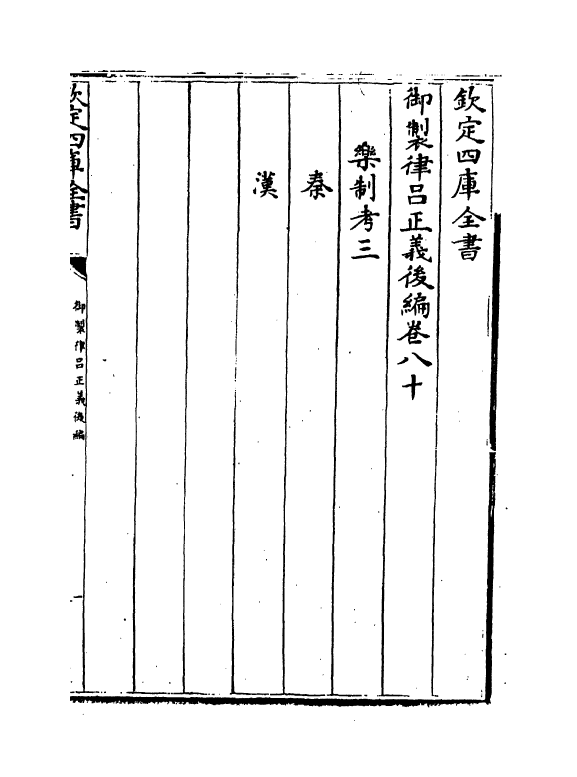 欽定四庫全書
御製律呂正義後編卷八十
樂制考三
秦
漢
欽定四庫全書
御製律呂正義後編
一